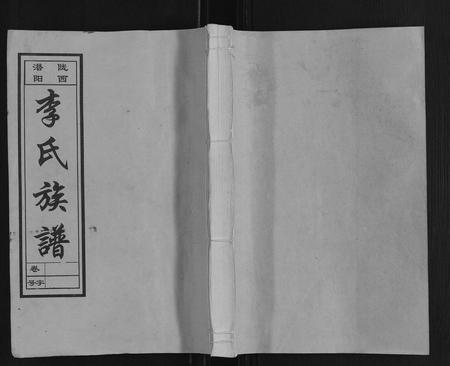 陇西
潜阳
李氏族譜
卷
字号